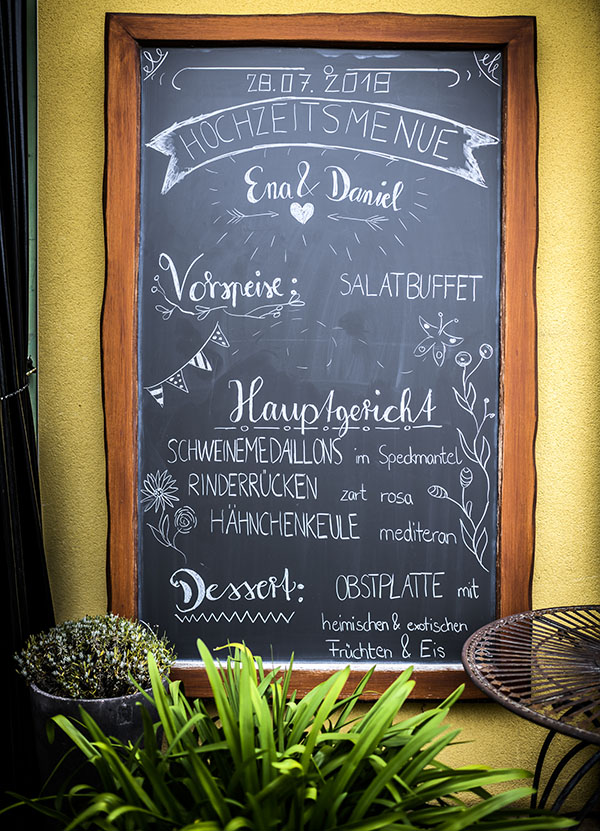 28.07.2018
HOCHZEITSMENUE
Ena & Daniel
Vorspeise: SALATBUFFET
Hauptgericht
SCHWEINEMEDAILLONS im Speckmantel
RINDERRÜCKEN zart rosa
HÄHNCHENKEULE mediteran
Dessert: OBSTPLATTE mit
heimischen & exotischen
Früchten & Eis